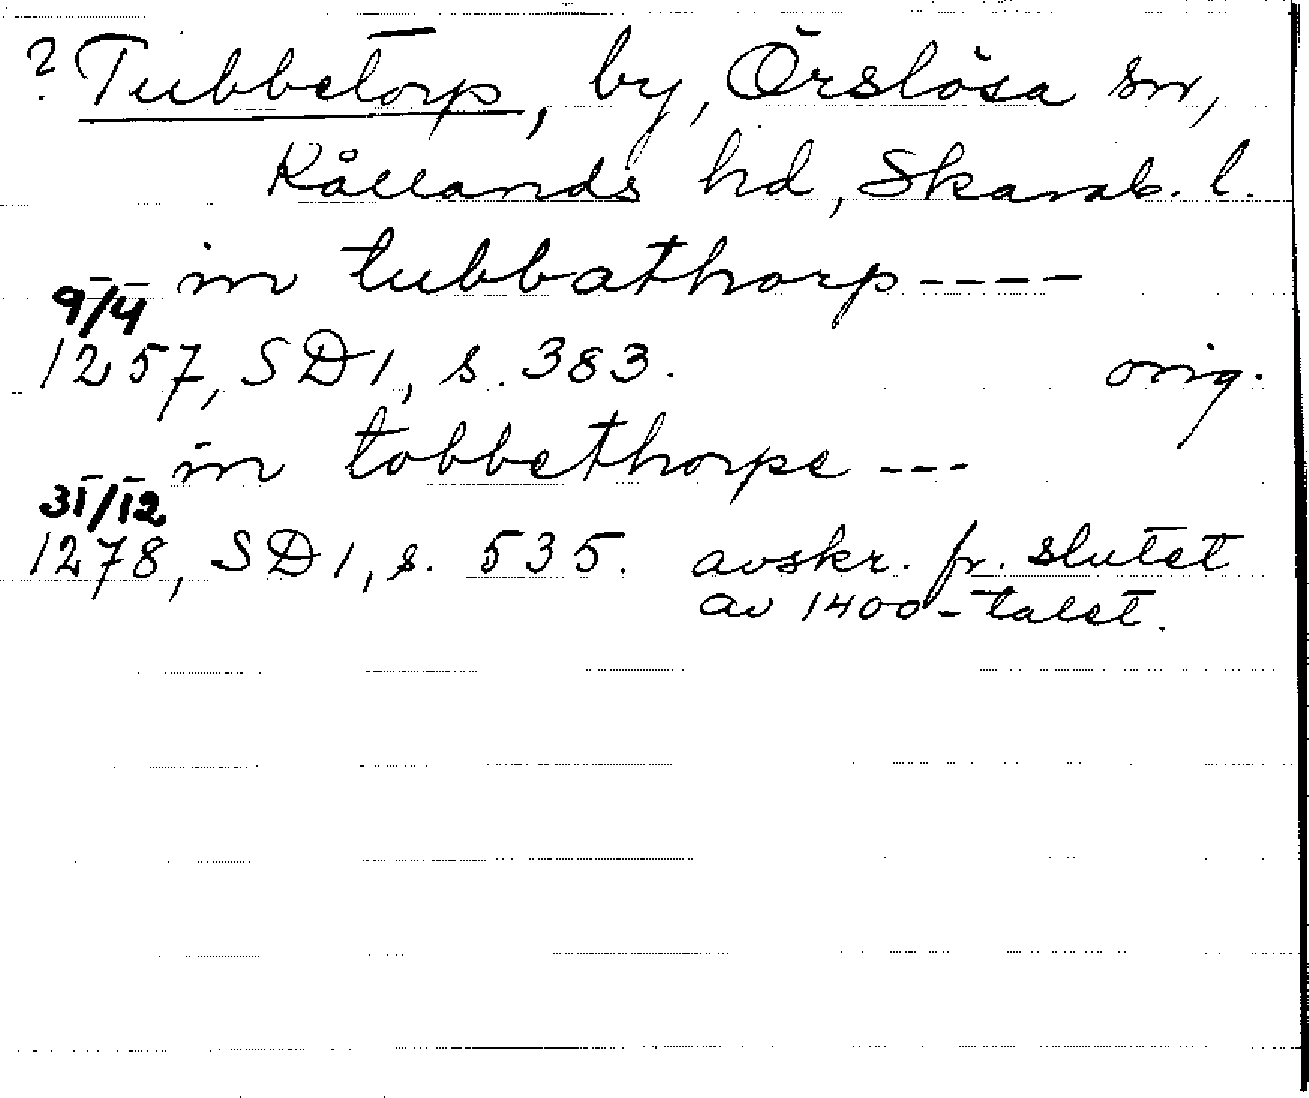 ? Tubbetorp, by, Örslösa sn,
Kållands hd, Skarab. l.
in tubbathorp ----
9/4
1257, SD 1, s. 383. orig.
in tobbethorpe ---
31/12
1278, SD 1, s. 535. avskr. fr. slutet
av 1400-talet.